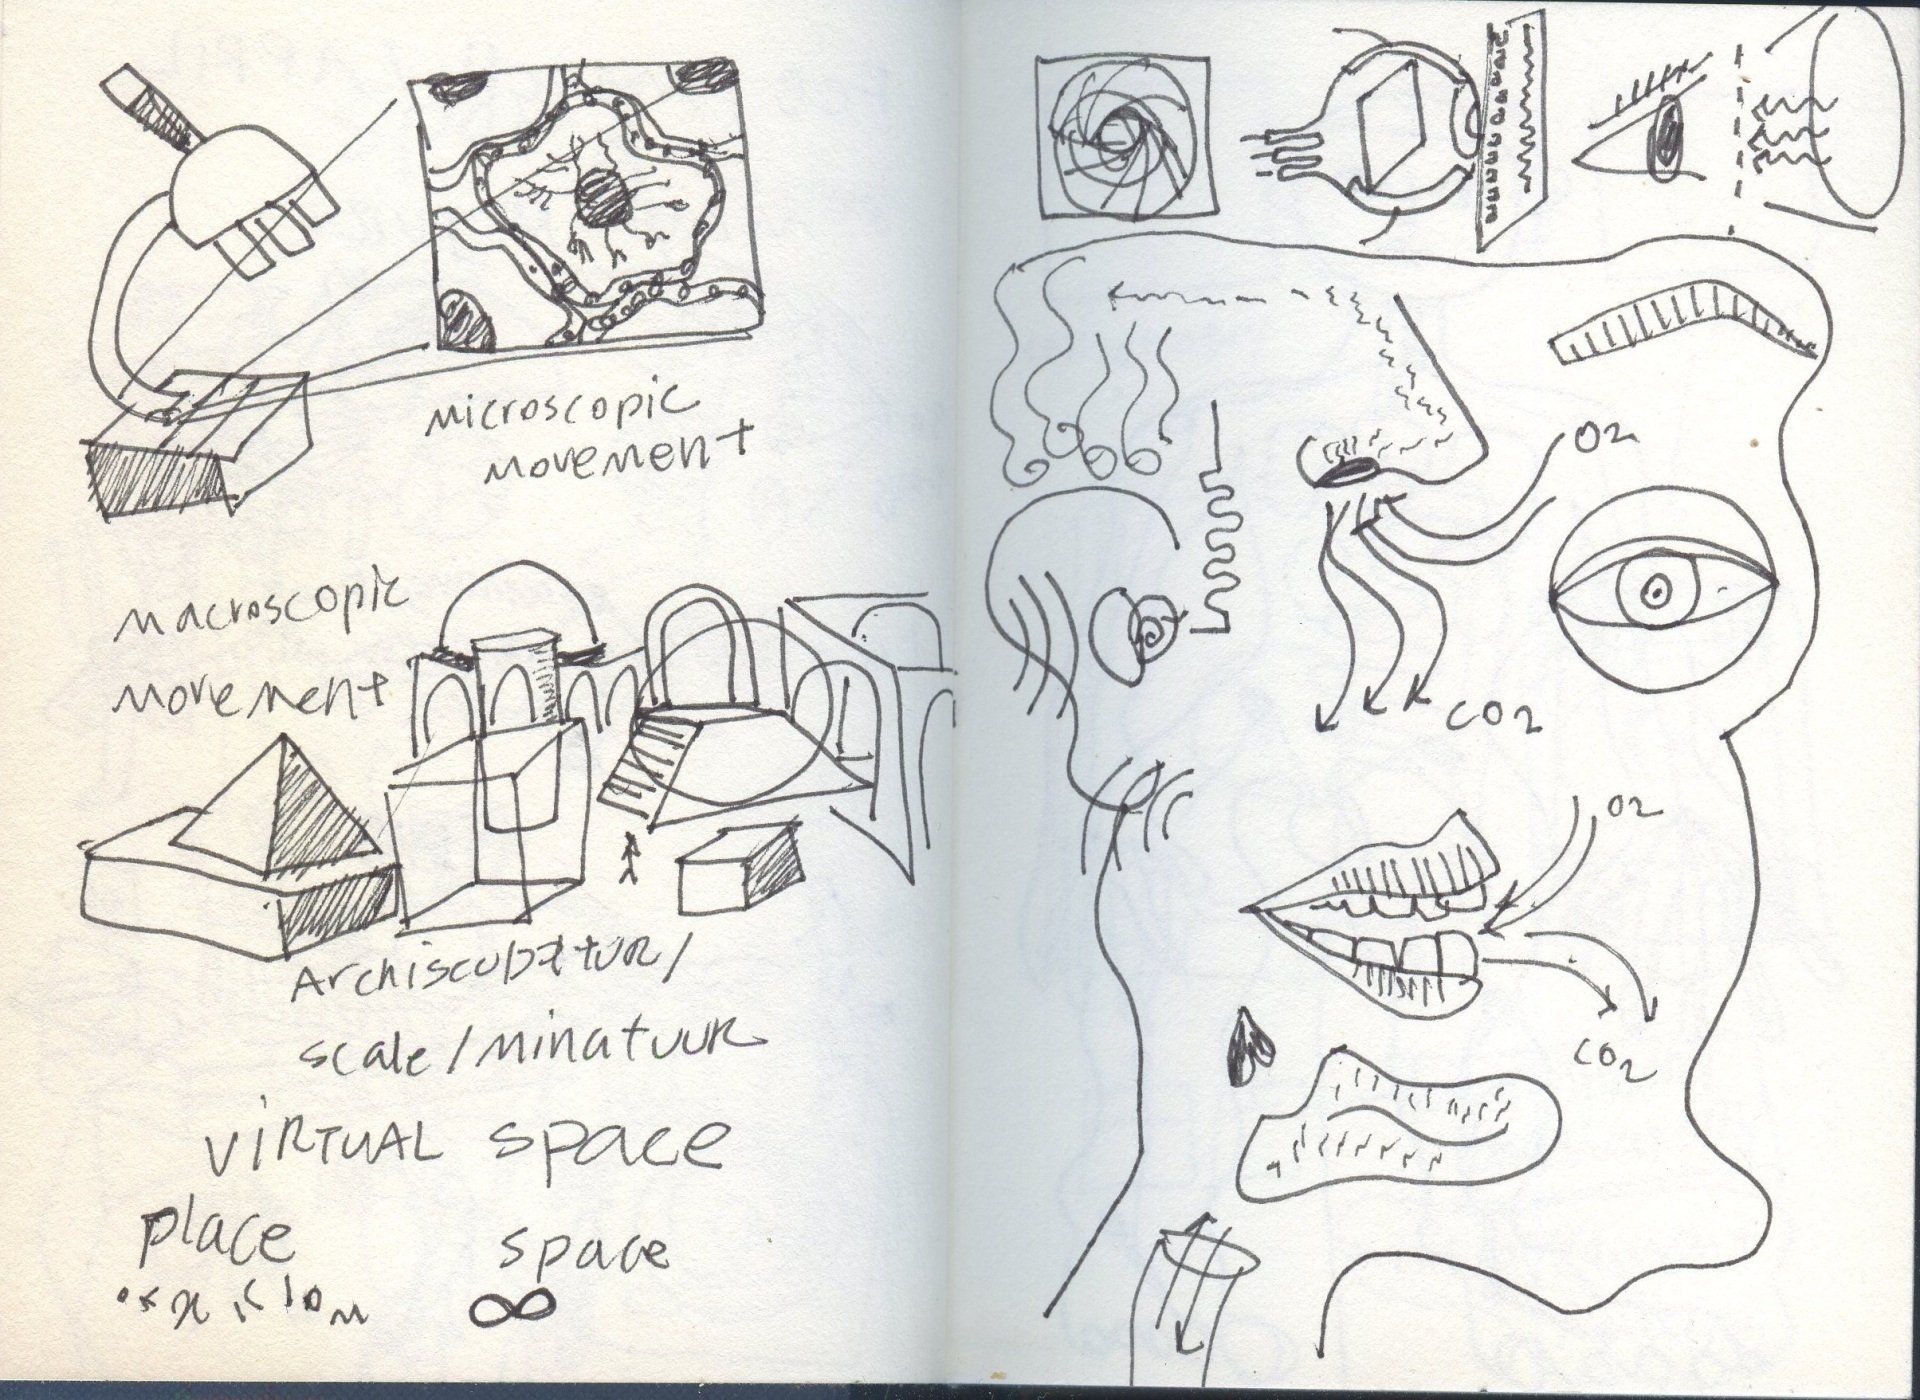 microscopic
movement
macroscopic
movement
Archisculptuur/
scale/minatuur
VIRTUAL space
place
space
∞
O2
CO2
O2
CO2